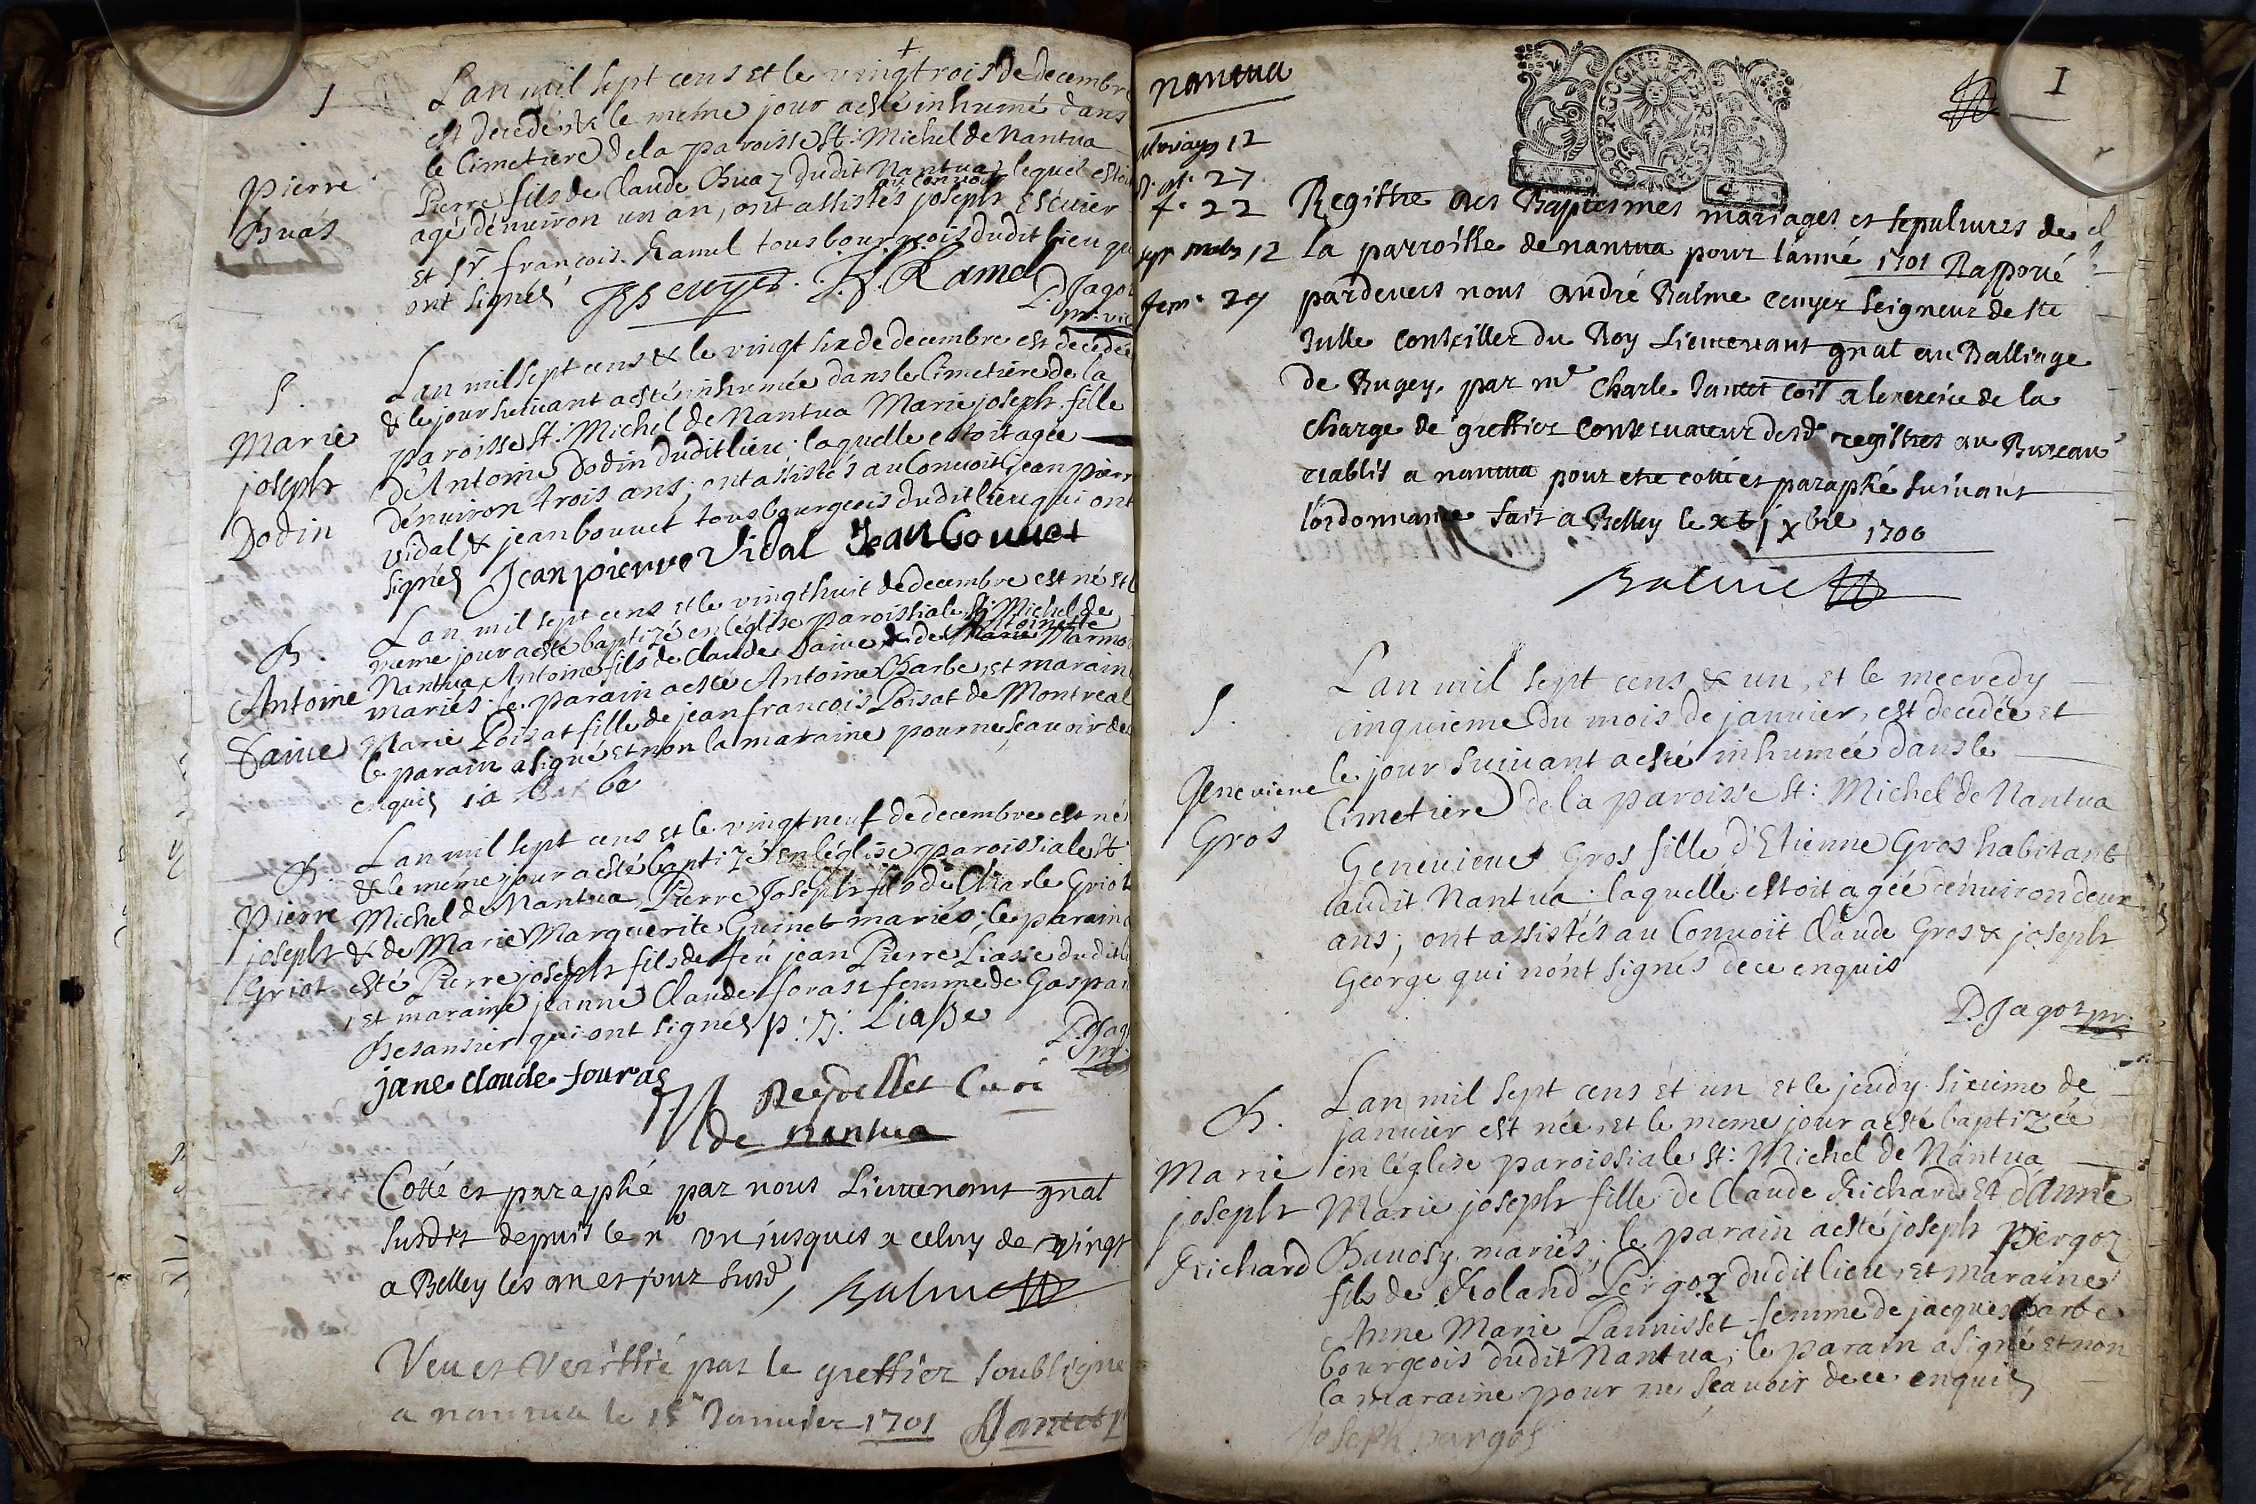 S
Pierre
Buas
L'an mil sept cens et le vingt trois de decembre
est decedé & le même jour a esté inhumé dans
le Cimetiere de la paroisse St: Michel de Nantua
Pierre fils de Claude Buaz dudit Nantua, lequel estoit
au convoit
agé d'énuiron un an, ont assistés joseph Escuier
et Sr. françois Ramel tous bourgeois dudit lieu qui
ont signés
D. Jagot
S.
Marie
joseph
Dodin
L'an mil sept cens & le vingt six de decembre est decedée
& le jour suiuant a esté inhumée dans le Cimetiere de la
paroisse St: Michel de Nantua Marie joseph fille
d'Antoine Dodin dudit lieu; laquelle estoit agée
d'énuiron trois ans; ont assistés au Conuoit jean pierre
vidal & jean bouuet tous bourgeois dudit lieu qui ont
signés Jean pierre Vidal Jean bouuet
B.
Antoine
Saiue
L'an mil sept cens et le vingt huit de decembre est né et le
meme jour a esté baptizé en l'église paroissiale St: Michel de
Antoinette
Nantua, Antoine fils de Claude Saiue & de Marie
mariés; le parain a esté Antoine Barbe, et maraine
Marie Poisat fille de jean francois Poisat de Montreal
le parain a signé et non la maraine pour ne sçauoir de ce
enquis
B.
Pierre
joseph
Griot
L'an mil sept cens et le vingt neuf de decembre est né
& le même jour a esté baptizé en l'église paroissiale St:
Michel de Nantua Pierre Joseph fils de Charle Griot
& de Marie Marguerite Guinet mariés; le parain a
esté Pierre joseph fils de feu jean Pierre Liasse dudit lieu
et maraine jeanne Claude foras femme de Gaspar
Besansier qui ont signés p: J: Liasse
D. Jagot
jane claude fouras
Reydellet Curé
de nantua
Cotté et paraphé par nous Lieutenant gnal
susdit depuis le no un jusques a celuy de vingt
a Belley les an et jour susd
Balme
Veu et Veriffié par le greffier soubsigné
a nantua le 15 Januier 1701 Jantet
nantua
12
27
f. 22
12
29
BOURGOGNE ET BRESSE
I
Registre des Baptesmes mariages et sepultures de
la parroisse de nantua pour l'anné 1701 Rapporté
pardeuers nous andré Balme ecuyer seigneur de ste
Julle conseiller du Roy Lieutenant gnal au Balliage
de Bugey, par me Charle Jantet a lexercice de la
charge de greffier conseruateur desd registres au Bureau
etablis a nantua pour etre cotté et paraphé suiuant
l'ordonnance fait a Belley le xbre 1700
Balme
S.
Geneuieue
Gros
L'an mil sept cens & un, et le mecredy
cinquieme du mois de januier, est decedée et
le jour suiuant a esté inhumée dans le
Cimetiere de la paroisse St: Michel de Nantua
Geneuieue Gros fille d'Etienne Gros habitant
audit Nantua; laquelle estoit agée d'énuiron deux
ans; ont assistés au Conuoit Claude Gros & joseph
George qui n'ont signés de ce enquis
D Jagot
B.
Marie
joseph
Richard
L'an mil sept cens et un et le jeudy sixieme de
januier est née, et le meme jour a esté baptizée
en l'église paroissiale St: Michel de Nantua
Marie joseph fille de Claude Richard et d'Anne
Bauosy mariés; le parain a esté joseph Pergoz
fils de Roland Pergoz dudit lieu, et maraine
Anne Marie Pannisset femme de jacques barbe
bourgeois dudit Nantua; le parain a signé et non
la maraine pour ne sçauoir de ce enquis
Joseph pargos